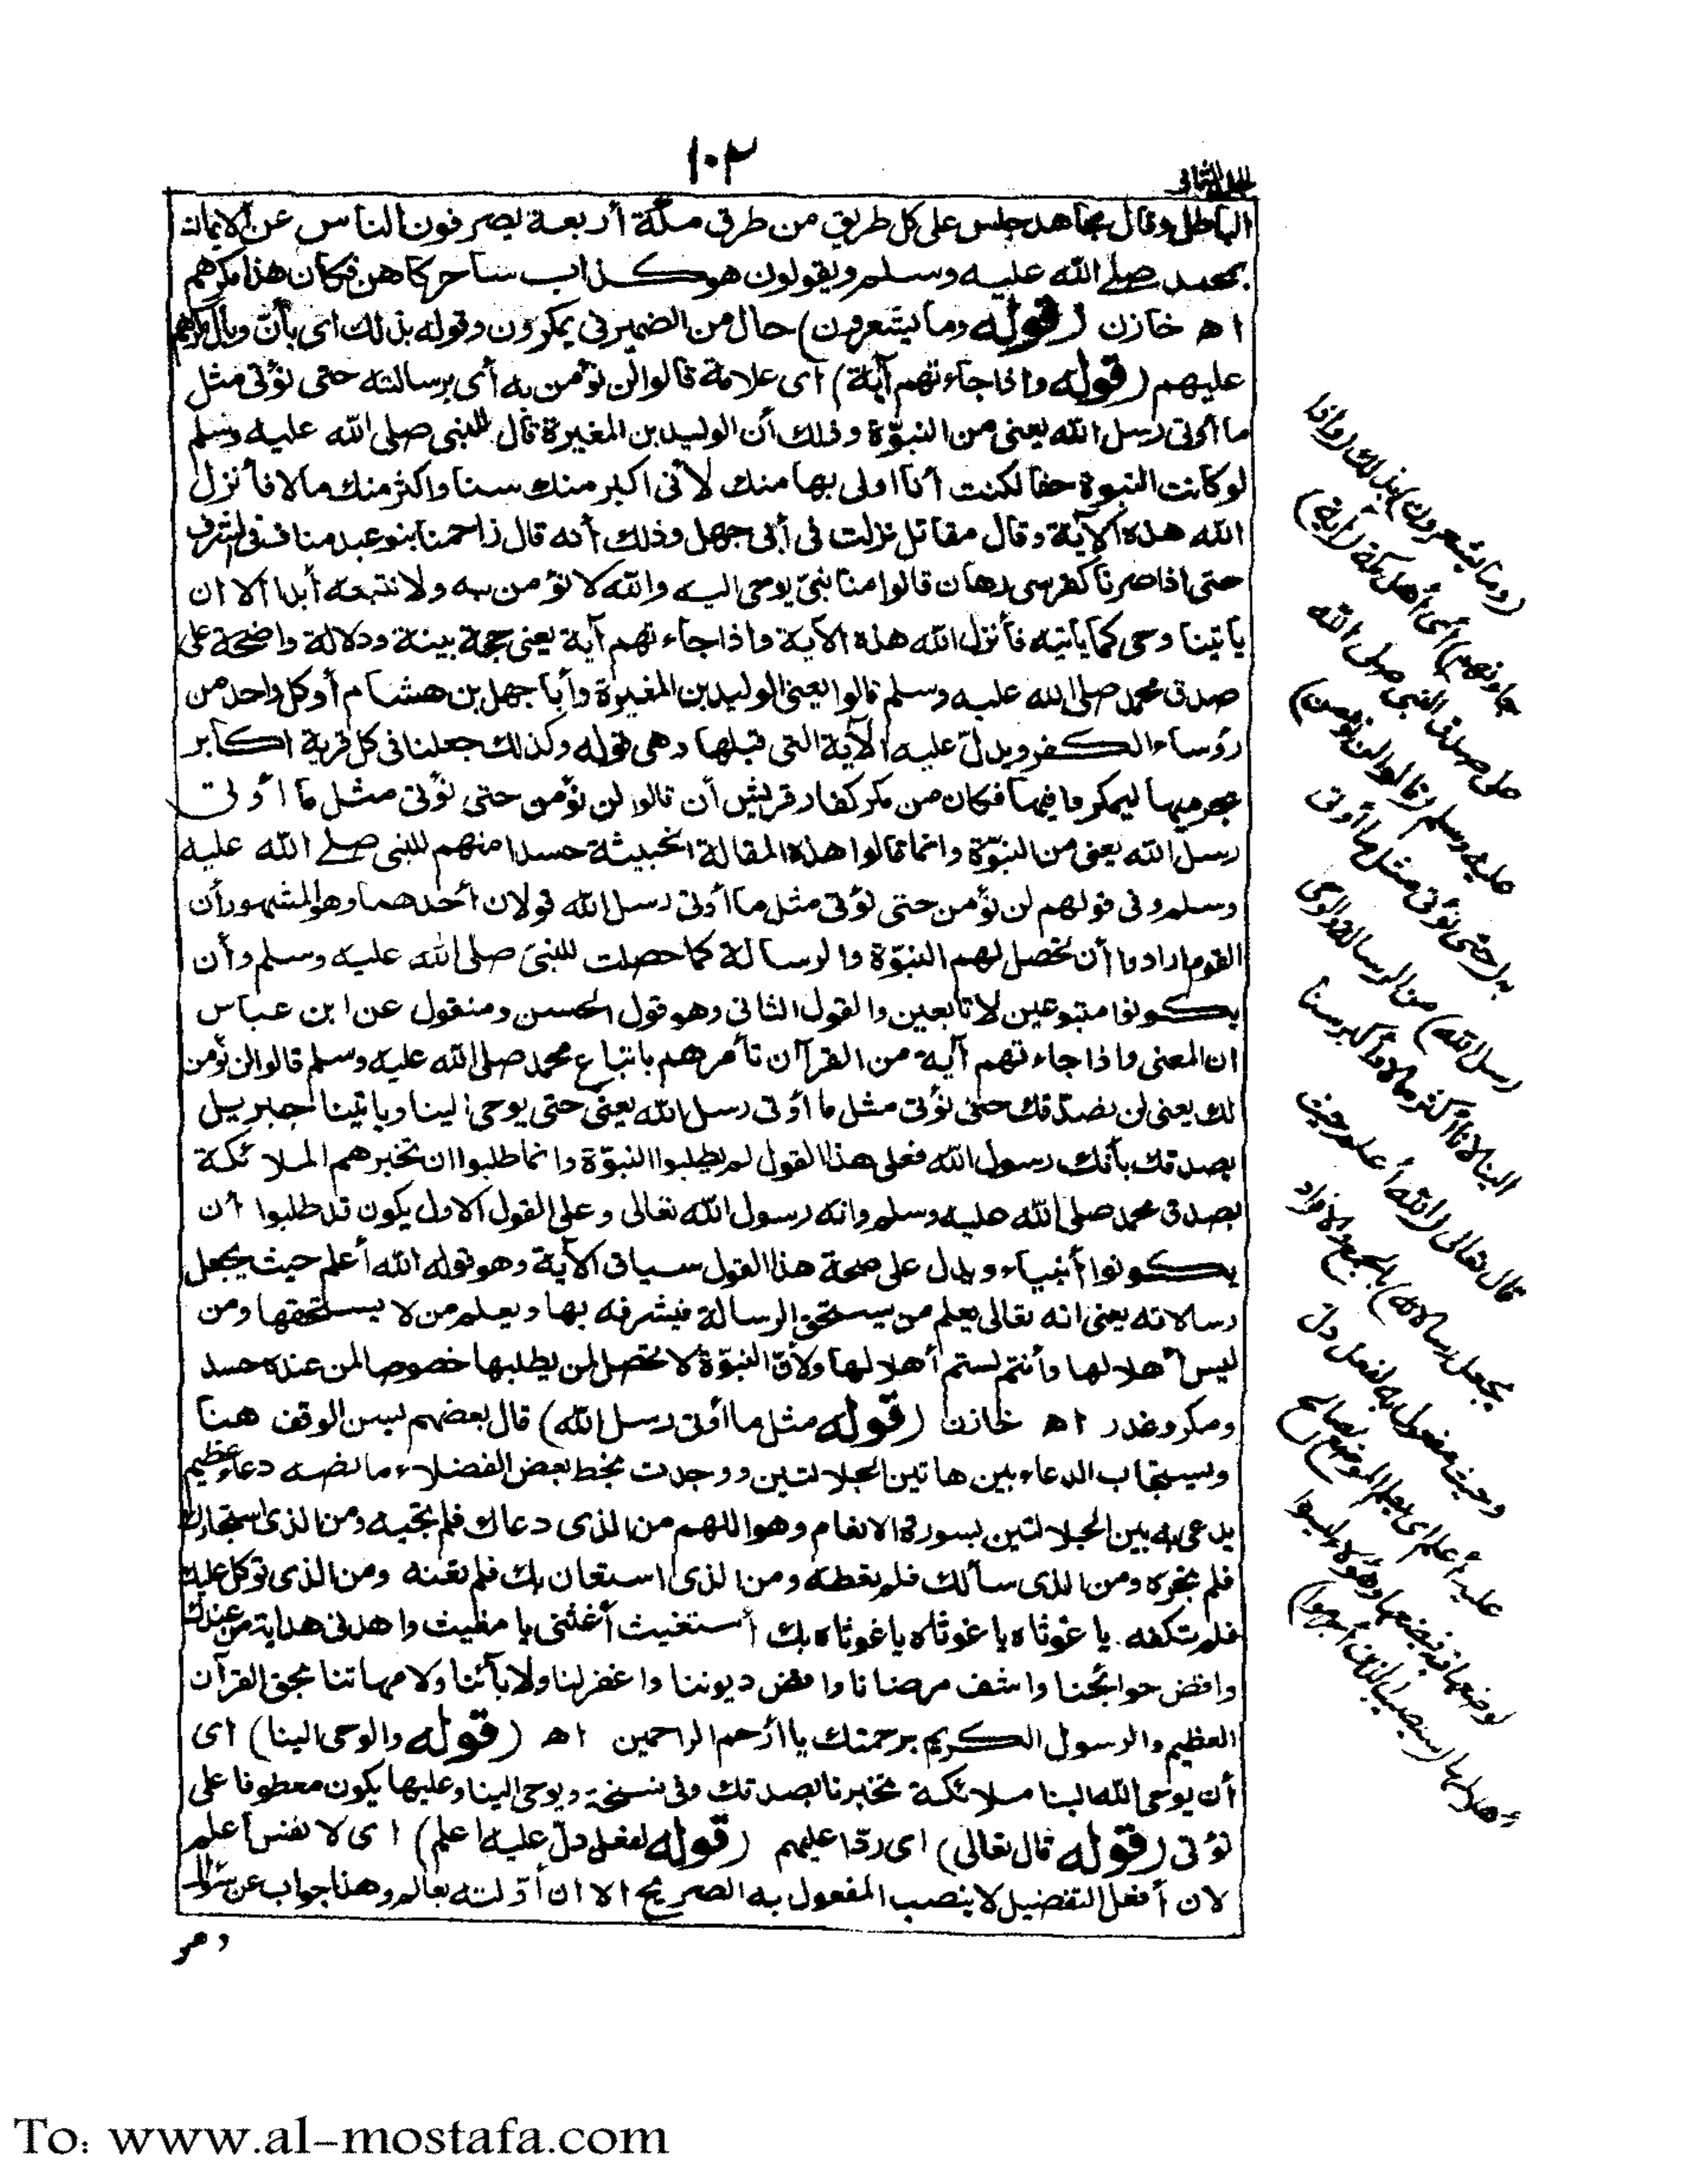 ١٠٢
الجلد الثانى
الباطل وقال مجاهد جلس على كل طريق من طرق مكة أربعة يصرفون الناس عن الايمان
بمحمد صلى الله عليه وسلم ويقولون هو كذاب ساحر كاهن فكان هذا مكرهم
اه خازن (قوله وما يشعرون) حال من الضمير فى يمكرون وقوله بذلك اى بأن وبال مكرهم
عليهم (قوله واذا جاءتهم آية) اى علامة قالوا لن نؤمن به أى برسالته حتى نؤتى مثل
ما أوتى رسل الله يعنى من النبوّة وذلك أن الوليد بن المغيرة قال للنبى صلى الله عليه وسلم
لو كانت النبوة حقا لكنت أنا اولى بها منك لأنى اكبر منك سنا واكثر منك مالا فأنزل
الله هذه الآية وقال مقاتل نزلت فى أبى جهل وذلك أنه قال زاحمنا بنو عبد مناف فى الشرف
حتى اذا صرنا كفرسى رهان قالوا منا نبىّ يوحى اليه والله لا نؤمن به ولا نتبعه أبدا الا ان
يأتينا وحى كما يأتيه فأنزل الله هذه الآية واذا جاءتهم آية يعنى حجة بينة ودلالة واضحة على
صدق محمد صلى الله عليه وسلم قالوا يعنى الوليد بن المغيرة وأبا جهل بن هشام أو كل واحد من
رؤساء الكفر ويدلّ عليه الآية التى قبلها وهى قوله وكذلك جعلنا فى كل قرية اكابر
مجرميها ليمكروا فيها فكان من مكر كفار قريش أن قالوا لن نؤمن حتى نؤتى مثل ما أوتى
رسل الله يعنى من النبوّة وانما قالوا هذه المقالة الخبيثة حسدا منهم للنبى صلى الله عليه
وسلم وفى قولهم لن نؤمن حتى نؤتى مثل ما أوتى رسل الله قولان أحدهما وهو المشهور أن
القوم ارادوا أن تحصل لهم النبوّة والرسالة كما حصلت للنبى صلى الله عليه وسلم وأن
يكونوا متبوعين لا تابعين والقول الثانى وهو قول الحسن ومنقول عن ابن عباس
ان المعنى واذا جاءتهم آية من القرآن تأمرهم باتباع محمد صلى الله عليه وسلم قالوا لن نؤمن
لك يعنى لن نصدّقك حتى نؤتى مثل ما أوتى رسل الله يعنى حتى يوحى الينا ويأتينا جبريل
يصدقك بأنك رسول الله فعلى هذا القول لم يطلبوا النبوّة وانما طلبوا ان تخبرهم الملائكة
بصدق محمد صلى الله عليه وسلم وانه رسول الله تعالى وعلى القول الاول يكون قد طلبوا أن
يكونوا أنبياء ويدل على صحة هذا القول سياق الآية وهو قوله الله أعلم حيث يجعل
رسالاته يعنى انه تعالى يعلم من يستحق الرسالة فيشرفه بها ويعلم من لا يستحقها ومن
ليس أهلا لها وأنتم لستم أهلا لها ولأنّ النبوّة لا تحصل لمن يطلبها خصوصا لمن عنده حسد
ومكر وغدر اه خازن (قوله مثل ما أوتى رسل الله) قال بعضهم يسن الوقف هنا
ويستجاب الدعاء بين هاتين الجلالتين ووجدت بخط بعض الفضلاء ما نصه دعاء عظيم
يدعى به بين الجلالتين بسورة الانعام وهو اللهم من الذى دعاك فلم تجبه ومن الذى استجارك
فلم تجره ومن الذى سألك فلم تعطه ومن الذى استعان بك فلم تعنه ومن الذى توكل عليك
فلم تكفه يا غوثاه يا غوثاه يا غوثاه بك أستغيث أغثنى يا مغيث واهدنى هداية من عندك
واقض حوائجنا واشف مرضانا واقض ديوننا واغفر لنا ولآبائنا ولامهاتنا بحق القرآن
العظيم والرسول الكريم برحمتك يا أرحم الراحمين اه (قوله والوحى الينا) اى
أن يوحى الله الينا ملائكة تخبرنا بصدقك وفى نسخة ويوحى الينا وعليها يكون معطوفا على
نؤتى (قوله قال تعالى) اى ردّا عليهم (قوله لفعل دلّ عليه اعلم) اى لا لنفس أعلم
لان أفعل التفضيل لا ينصب المفعول به الصريح الا ان أوّلته بعالم وهذا جواب عن سؤال
(وما يشعرون) بذلك (واذا
جاءتهم) أى أهل مكة (آية)
على صدق النبى صلى الله
عليه وسلم (قالوا لن نؤمن)
به (حتى نؤتى مثل ما أوتى
رسل الله) من الرسالة والوحى
الينا لانا أكثر مالا وأكبر سنا
قال تعالى (الله أعلم حيث
يجعل رسالاته) بالجمع والافراد
وحيث مفعول به لفعل دل
عليه أعلم اى يعلم الموضع الصالح
لوضعها فيه فيضعها وهؤلاء ليسوا
أهلا لها (سيصيب الذين أجرموا)
To: www.al-mostafa.com